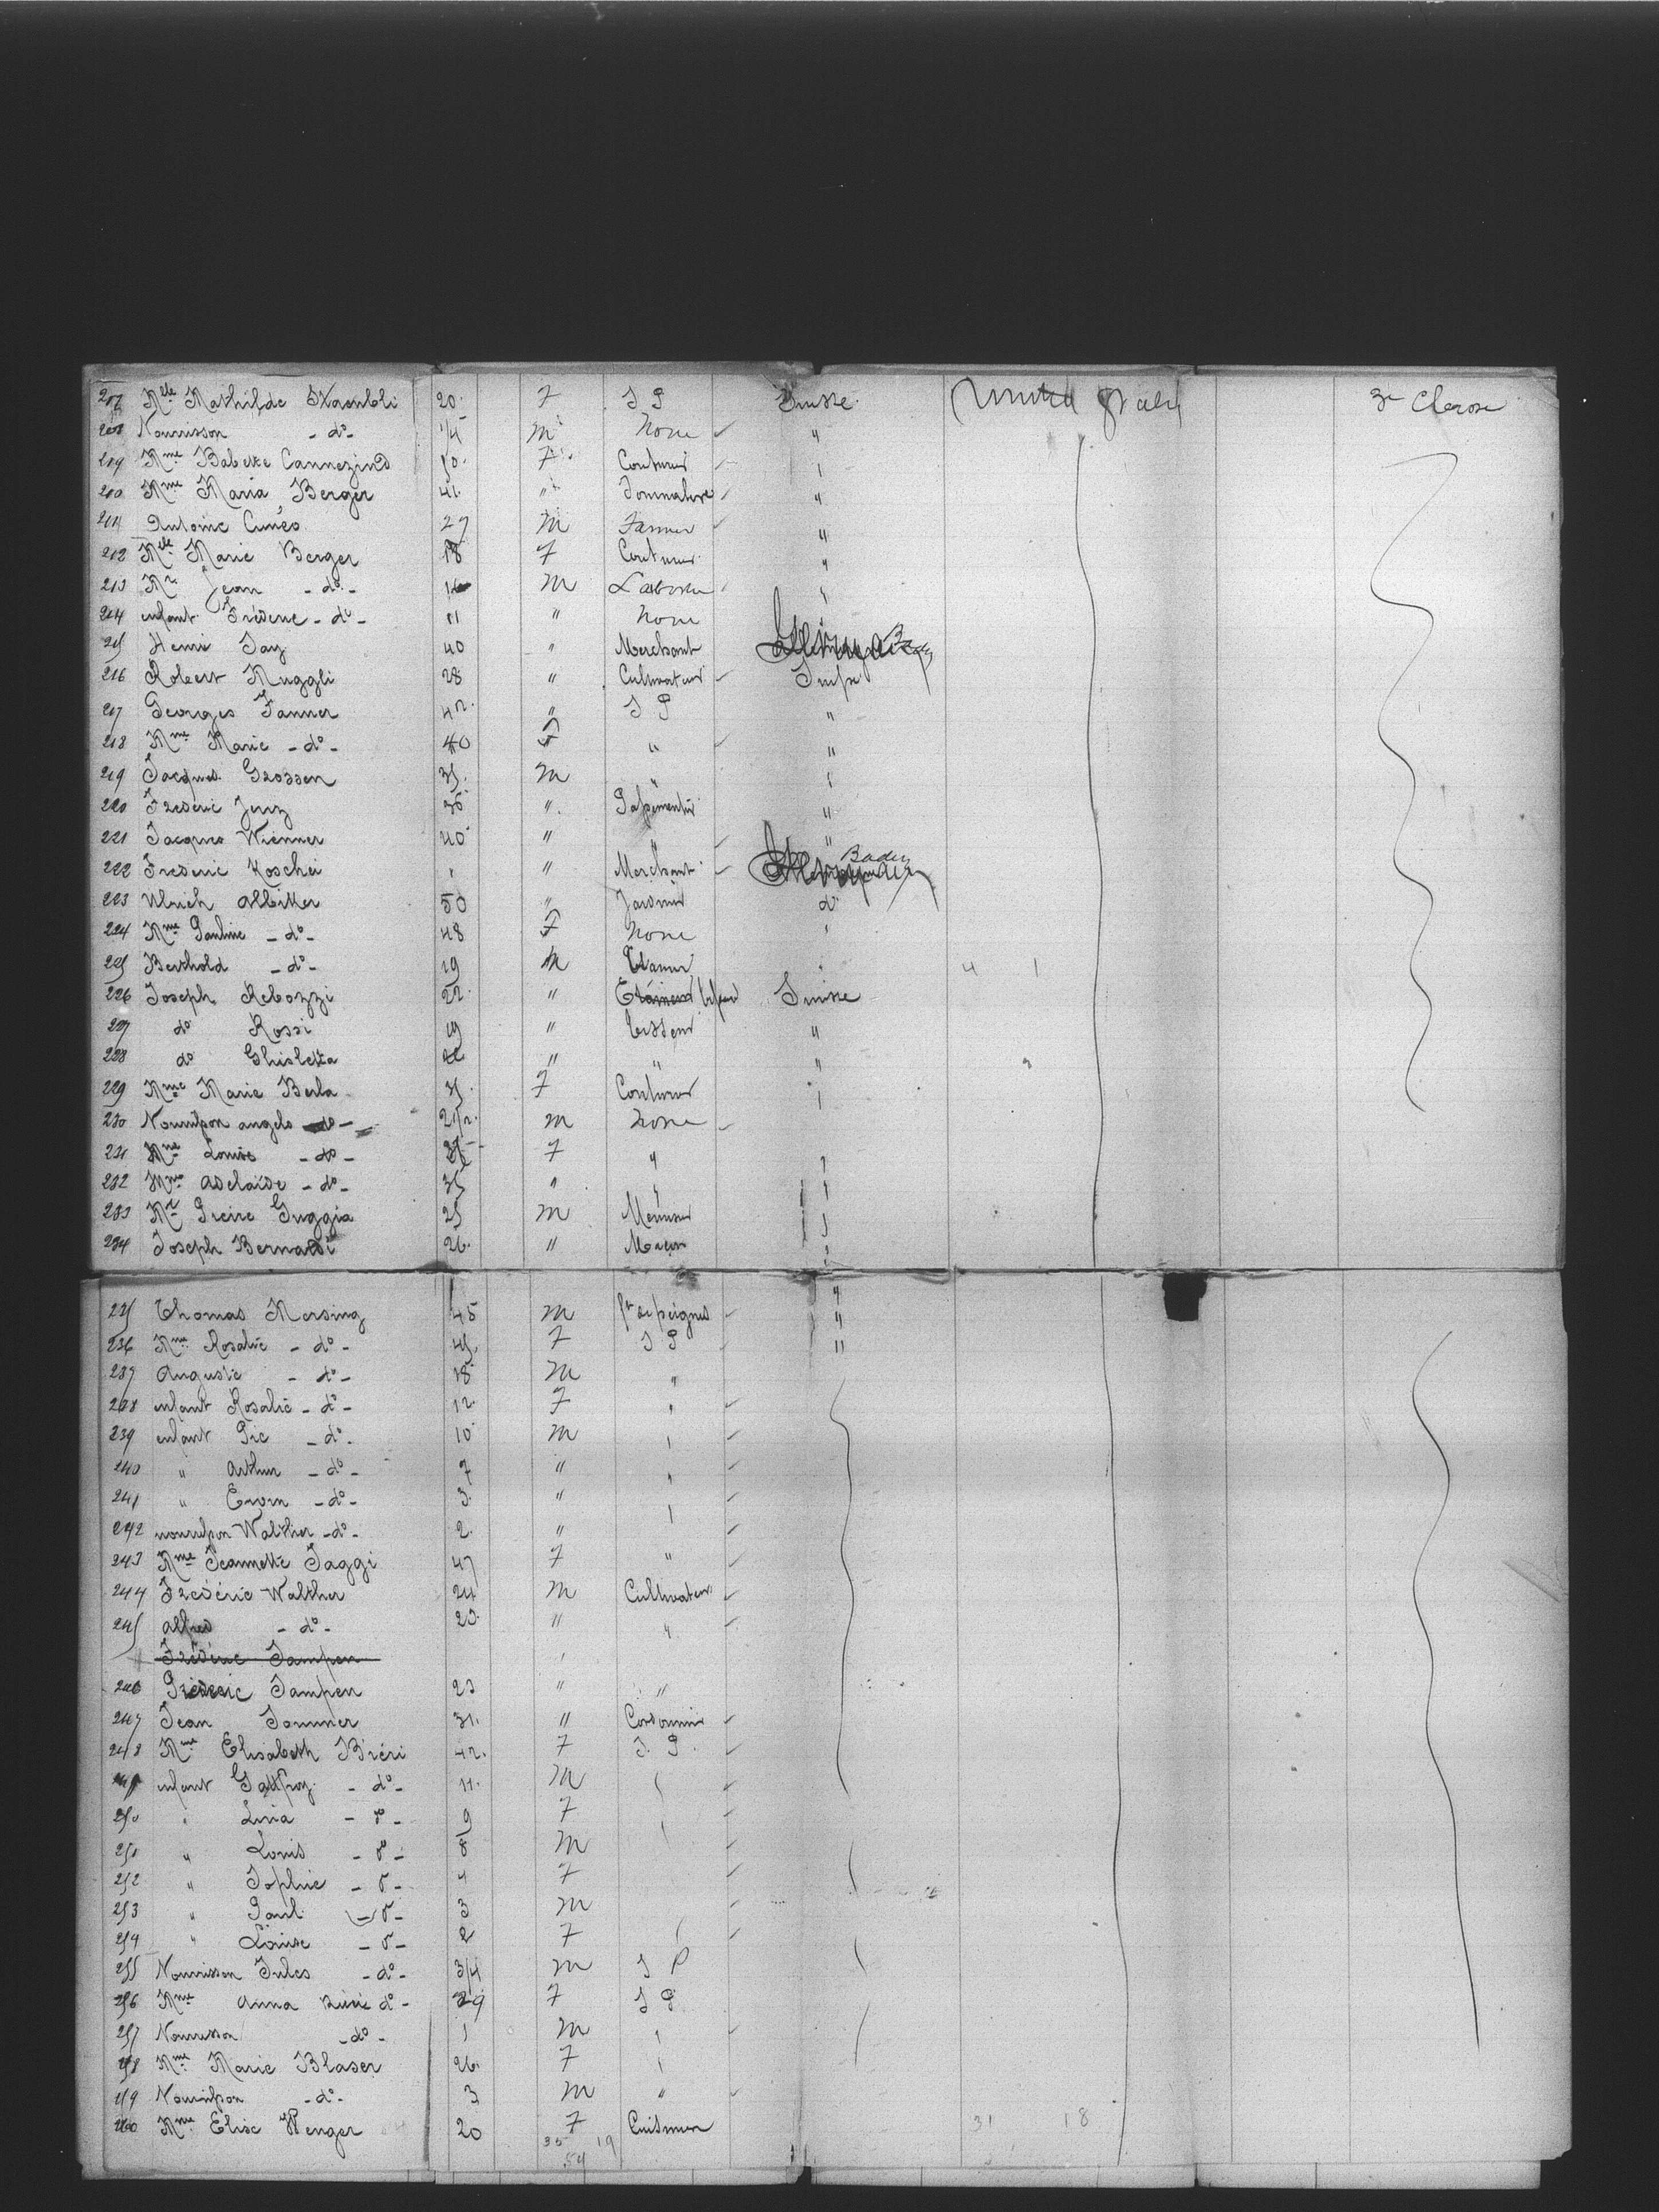 207 Mlle Mathilde 20 F S P Suisse United States 3e Classe
208 Nourrisson - do - 1/4 M None "
209 Mme Babette Cannezind 50 F Couturier "
210 Mme Maria Berger 41 " "
211 Antoine Cuneo 27 M Farmer "
212 Mlle Marie Berger 18 F Couturier "
213 Mr Jean - do - M Laborer "
214 enfant Frédéric - do - 11 " None
215 Henri Jay 40 " Merchant
216 Robert Muggli 28 " Cultivateur Suisse
217 Georges Fanner 42 " S P "
218 Mme Marie - do - 40 F " "
219 Jacques Grossen 35 M " "
220 Frédéric Jenz 36 " Passementier "
221 Jacques Wienner 40 " " "
222 Frédéric Koschei " Merchant Baden
223 Ulrich Albitker 50 " Jardinier do
224 Mme Pauline - do - 48 F None "
225 Berthold - do - 19 M Tanner " 4 1
226 Joseph Rebozzi 22 " Suisse
227 do Rossi 19 " Tisseur "
228 do Ghisletta " " "
229 Mme Marie Berla 35 F Couturier "
230 Nourrisson angelo - do - 2 1/2 M None
231 Mme Louise - do - F " "
232 Mme Adelaïde - do - 35 " " "
233 Mr Pierre Guggia 25 M Menuisier "
234 Joseph Bernardi 26 " Maçon "
235 Thomas Mersing 45 M ft de peignes "
236 Mme Rosalie - do - 45 F S P "
237 Auguste - do - 18 M "
238 enfant Rosalie - do - 12 F "
239 enfant Pie - do - 10 M "
240 " Arthur - do - 7 " "
241 " Erwin - do - 3 " "
242 nourrisson Walther - do - 2 "
243 Mme Jeannette Jaggi 47 F "
244 Frédéric Walther 24 M Cultivateur
245 Alfred - do - 23 " "
Frédéric Sampen
246 Frédéric Sampen 23 " "
247 Jean Sommer 31 " Cordonnier
248 Mme Elisabeth Biéri 42 F S. P.
enfant - do - 11 M
250 " Lina - do - 9 F
251 " Louis - do - 8 M
252 " Sophie - do - 4 F
253 " Paul - do - 3 M
254 " Louise - do - 2 F
255 Nourrisson Jules - do - 3/4 M S P
256 Mme Anna Biéri do - 29 F S P
257 Nourrisson - do - 1 M "
258 Mme Marie Blaser 26 F "
259 Nourrisson - do - 3 M "
260 Mme Elise Wenger 20 F Cuisinier 31 18
35 19
54